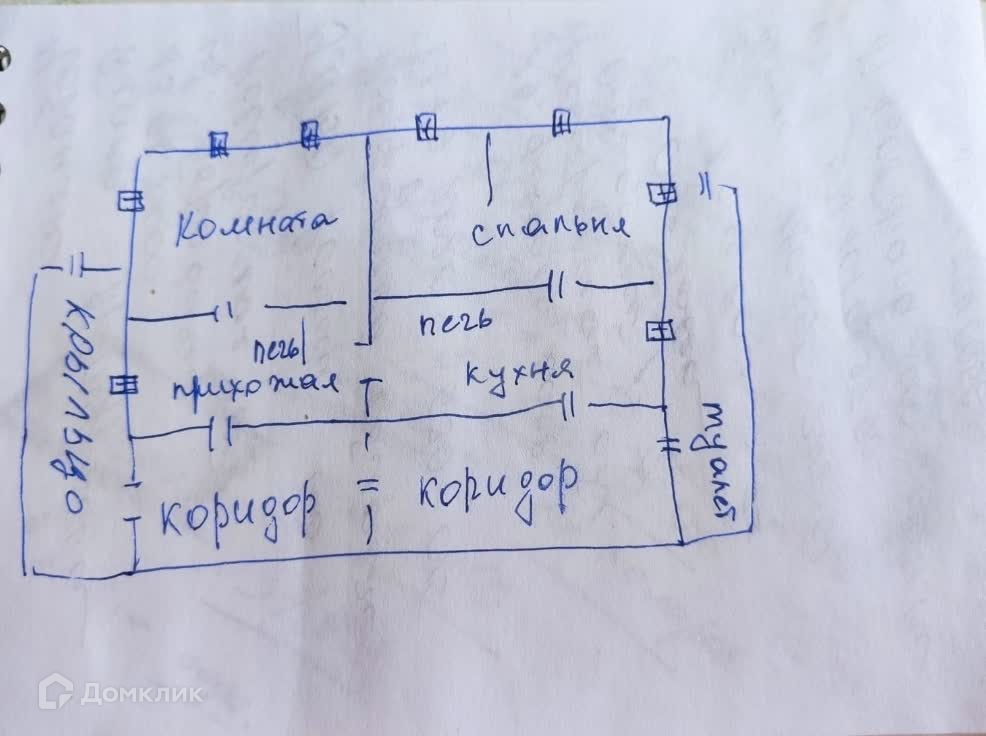 комната
спальня
печь
печь
кухня
прихожая
крыльцо
туалет
коридор
коридор
Домклик